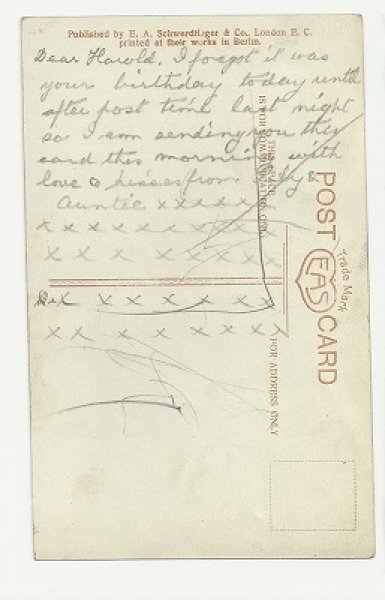 Published by E. A. Schwerdtfeger & Co., London E. C.
printed at their works in Berlin.
Dear Harold, I forgot it was
your birthday today until
after post time last night
so I am sending you this
card this morning with
love & kisses from
Auntie x x x x x x
x x x x x x x x x
x x x x x x x
x x x x x x
x x x x x x x x
THIS SPACE
IS FOR COMMUNICATION ONLY
POST CARD
EAS
Trade Mark
FOR ADDRESS ONLY